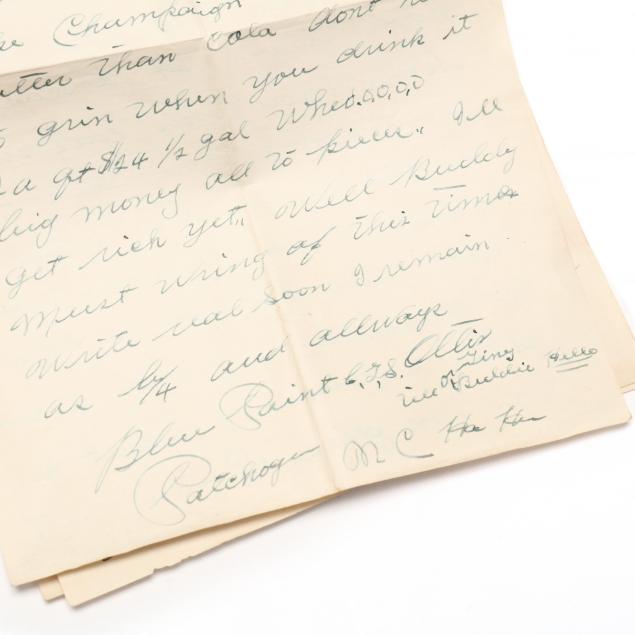 Champaign
than Cola dont
grin when you drink it
a qt $24 1/2 gal Whe0.00.0.0
big money all to pieces. I'll
get rich yet,, Well Buddy
Must wring of this time
Write real soon I remain
as b/4 and allways
Blue Point C.G.S. Ottis
Tell Tiny
or Buddie Hello
Patchogue M C Ha Ha